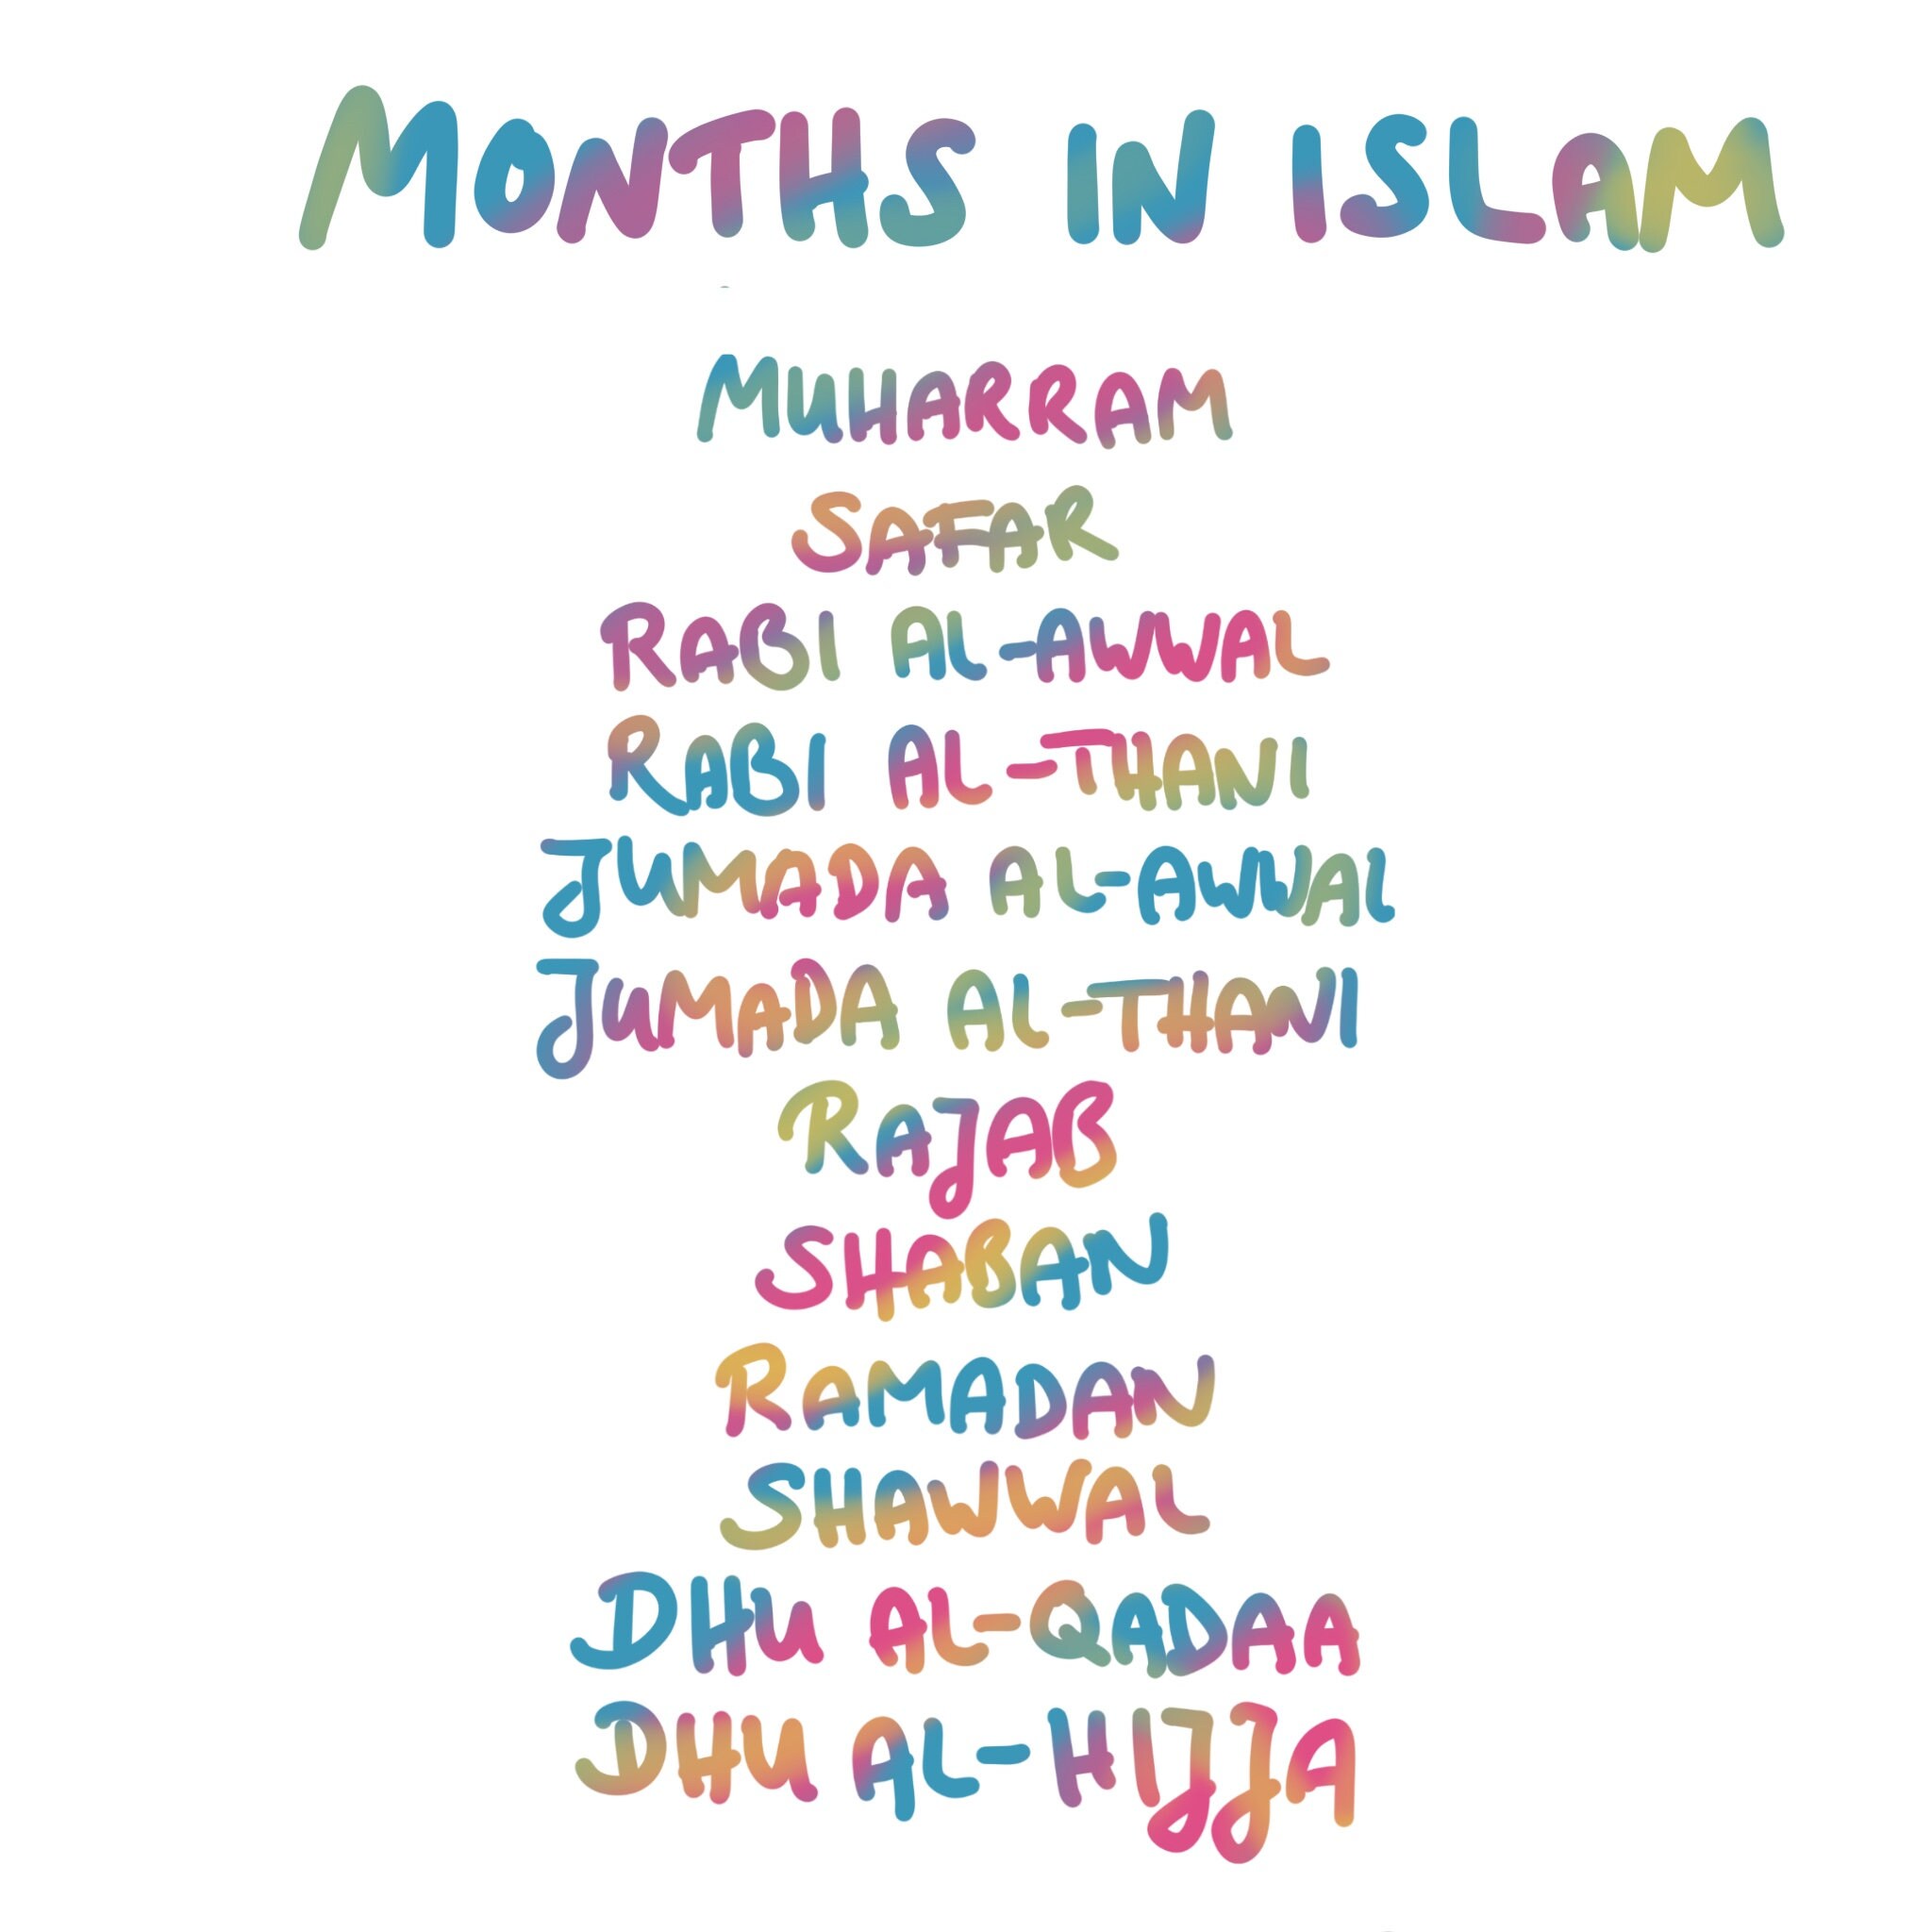 MONTHS IN ISLAM
MUHARRAM
SAFAR
RABI AL-AWWAL
RABI AL-THANI
JUMADA AL-AWWAL
JUMADA AL-THANI
RAJAB
SHABAN
RAMADAN
SHAWWAL
DHU AL-QADAA
DHU AL-HIJJA